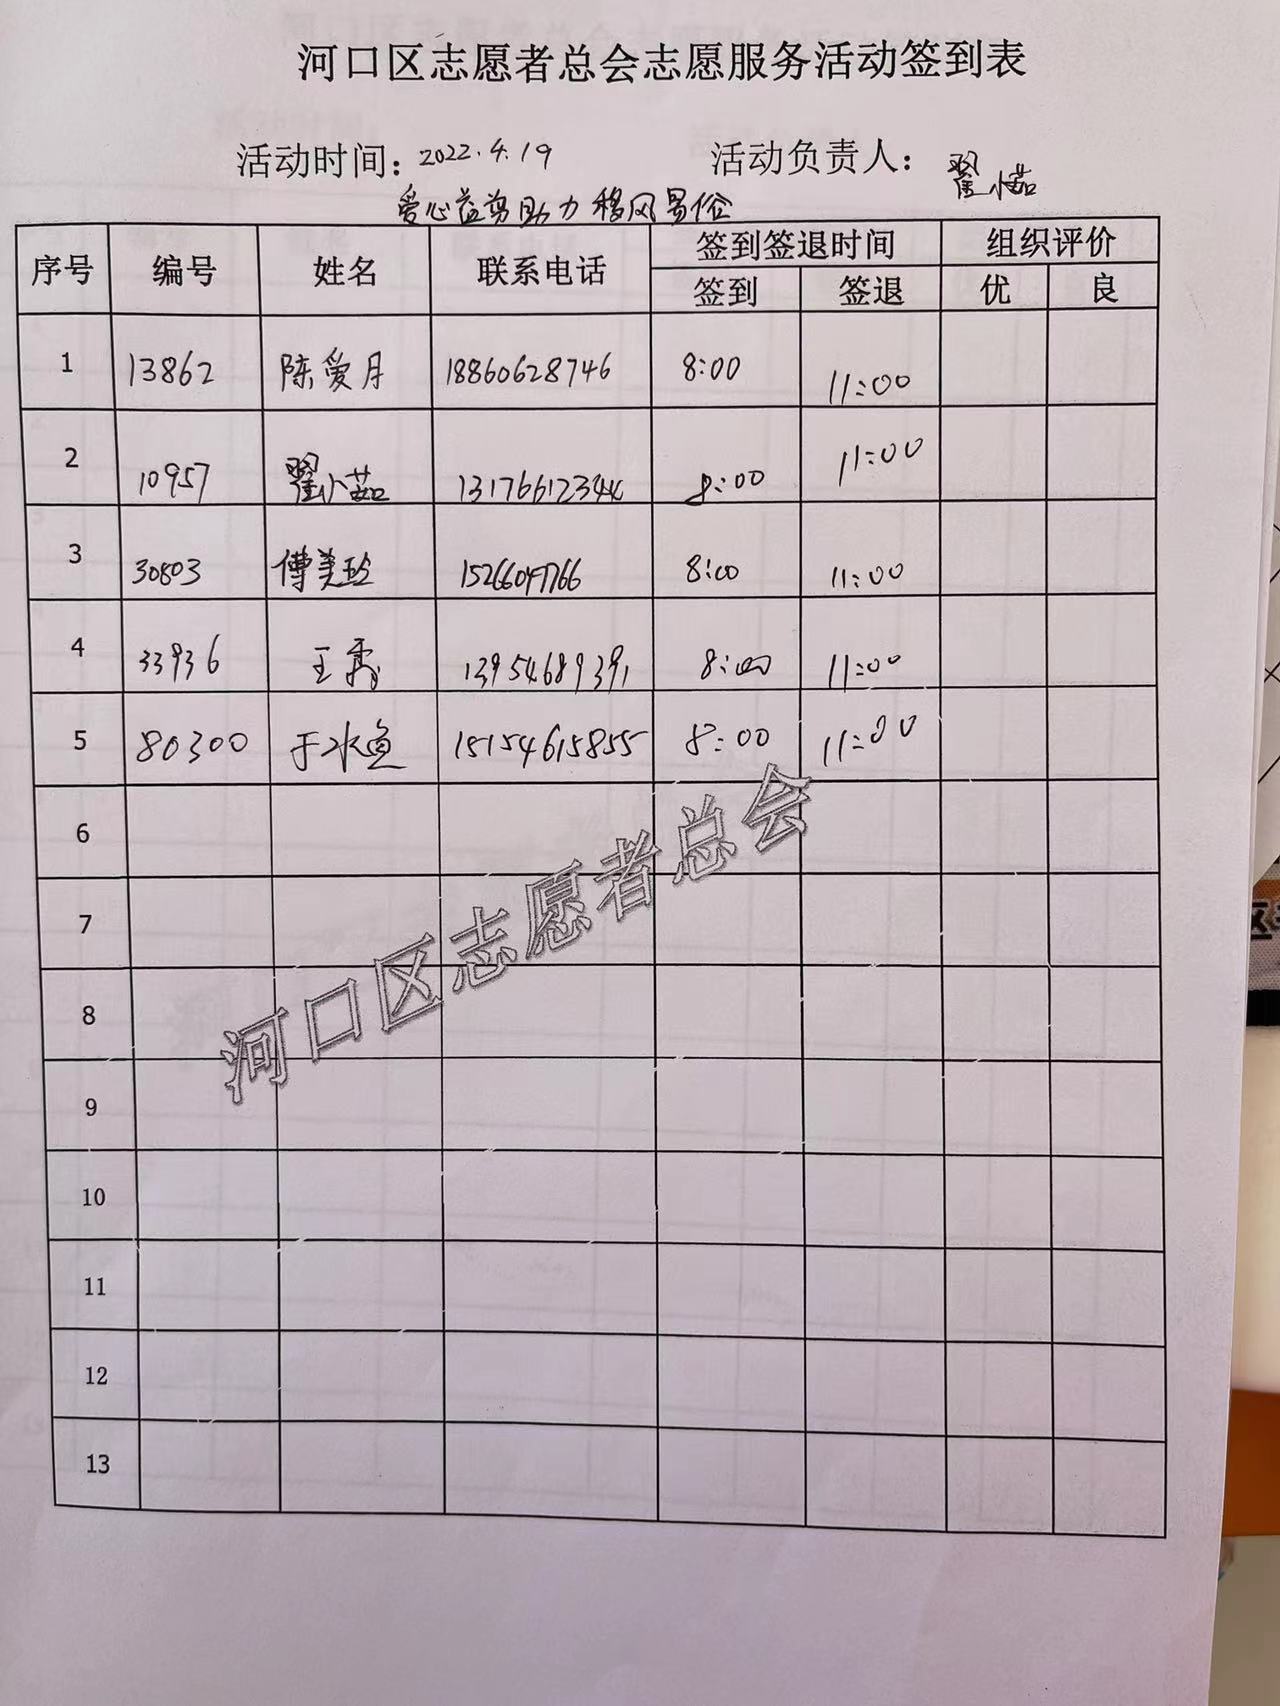 河口区志愿者总会志愿服务活动签到表
活动时间：2022.4.19 活动负责人：翟小茹
爱心益剪助力移风易俗
序号 编号 姓名 联系电话 签到签退时间 组织评价
签到 签退 优 良
1 13862 陈爱月 18860628746 8:00 11:00
2 10957 翟小茹 13176612344 8:00 11:00
3 30803 傅美玲 15266047766 8:00 11:00
4 33936 王 13954689391 8:00 11:00
5 80300 于水鱼 15154615855 8:00 11:00
6
7
8
9
10
11
12
13
河口区志愿者总会